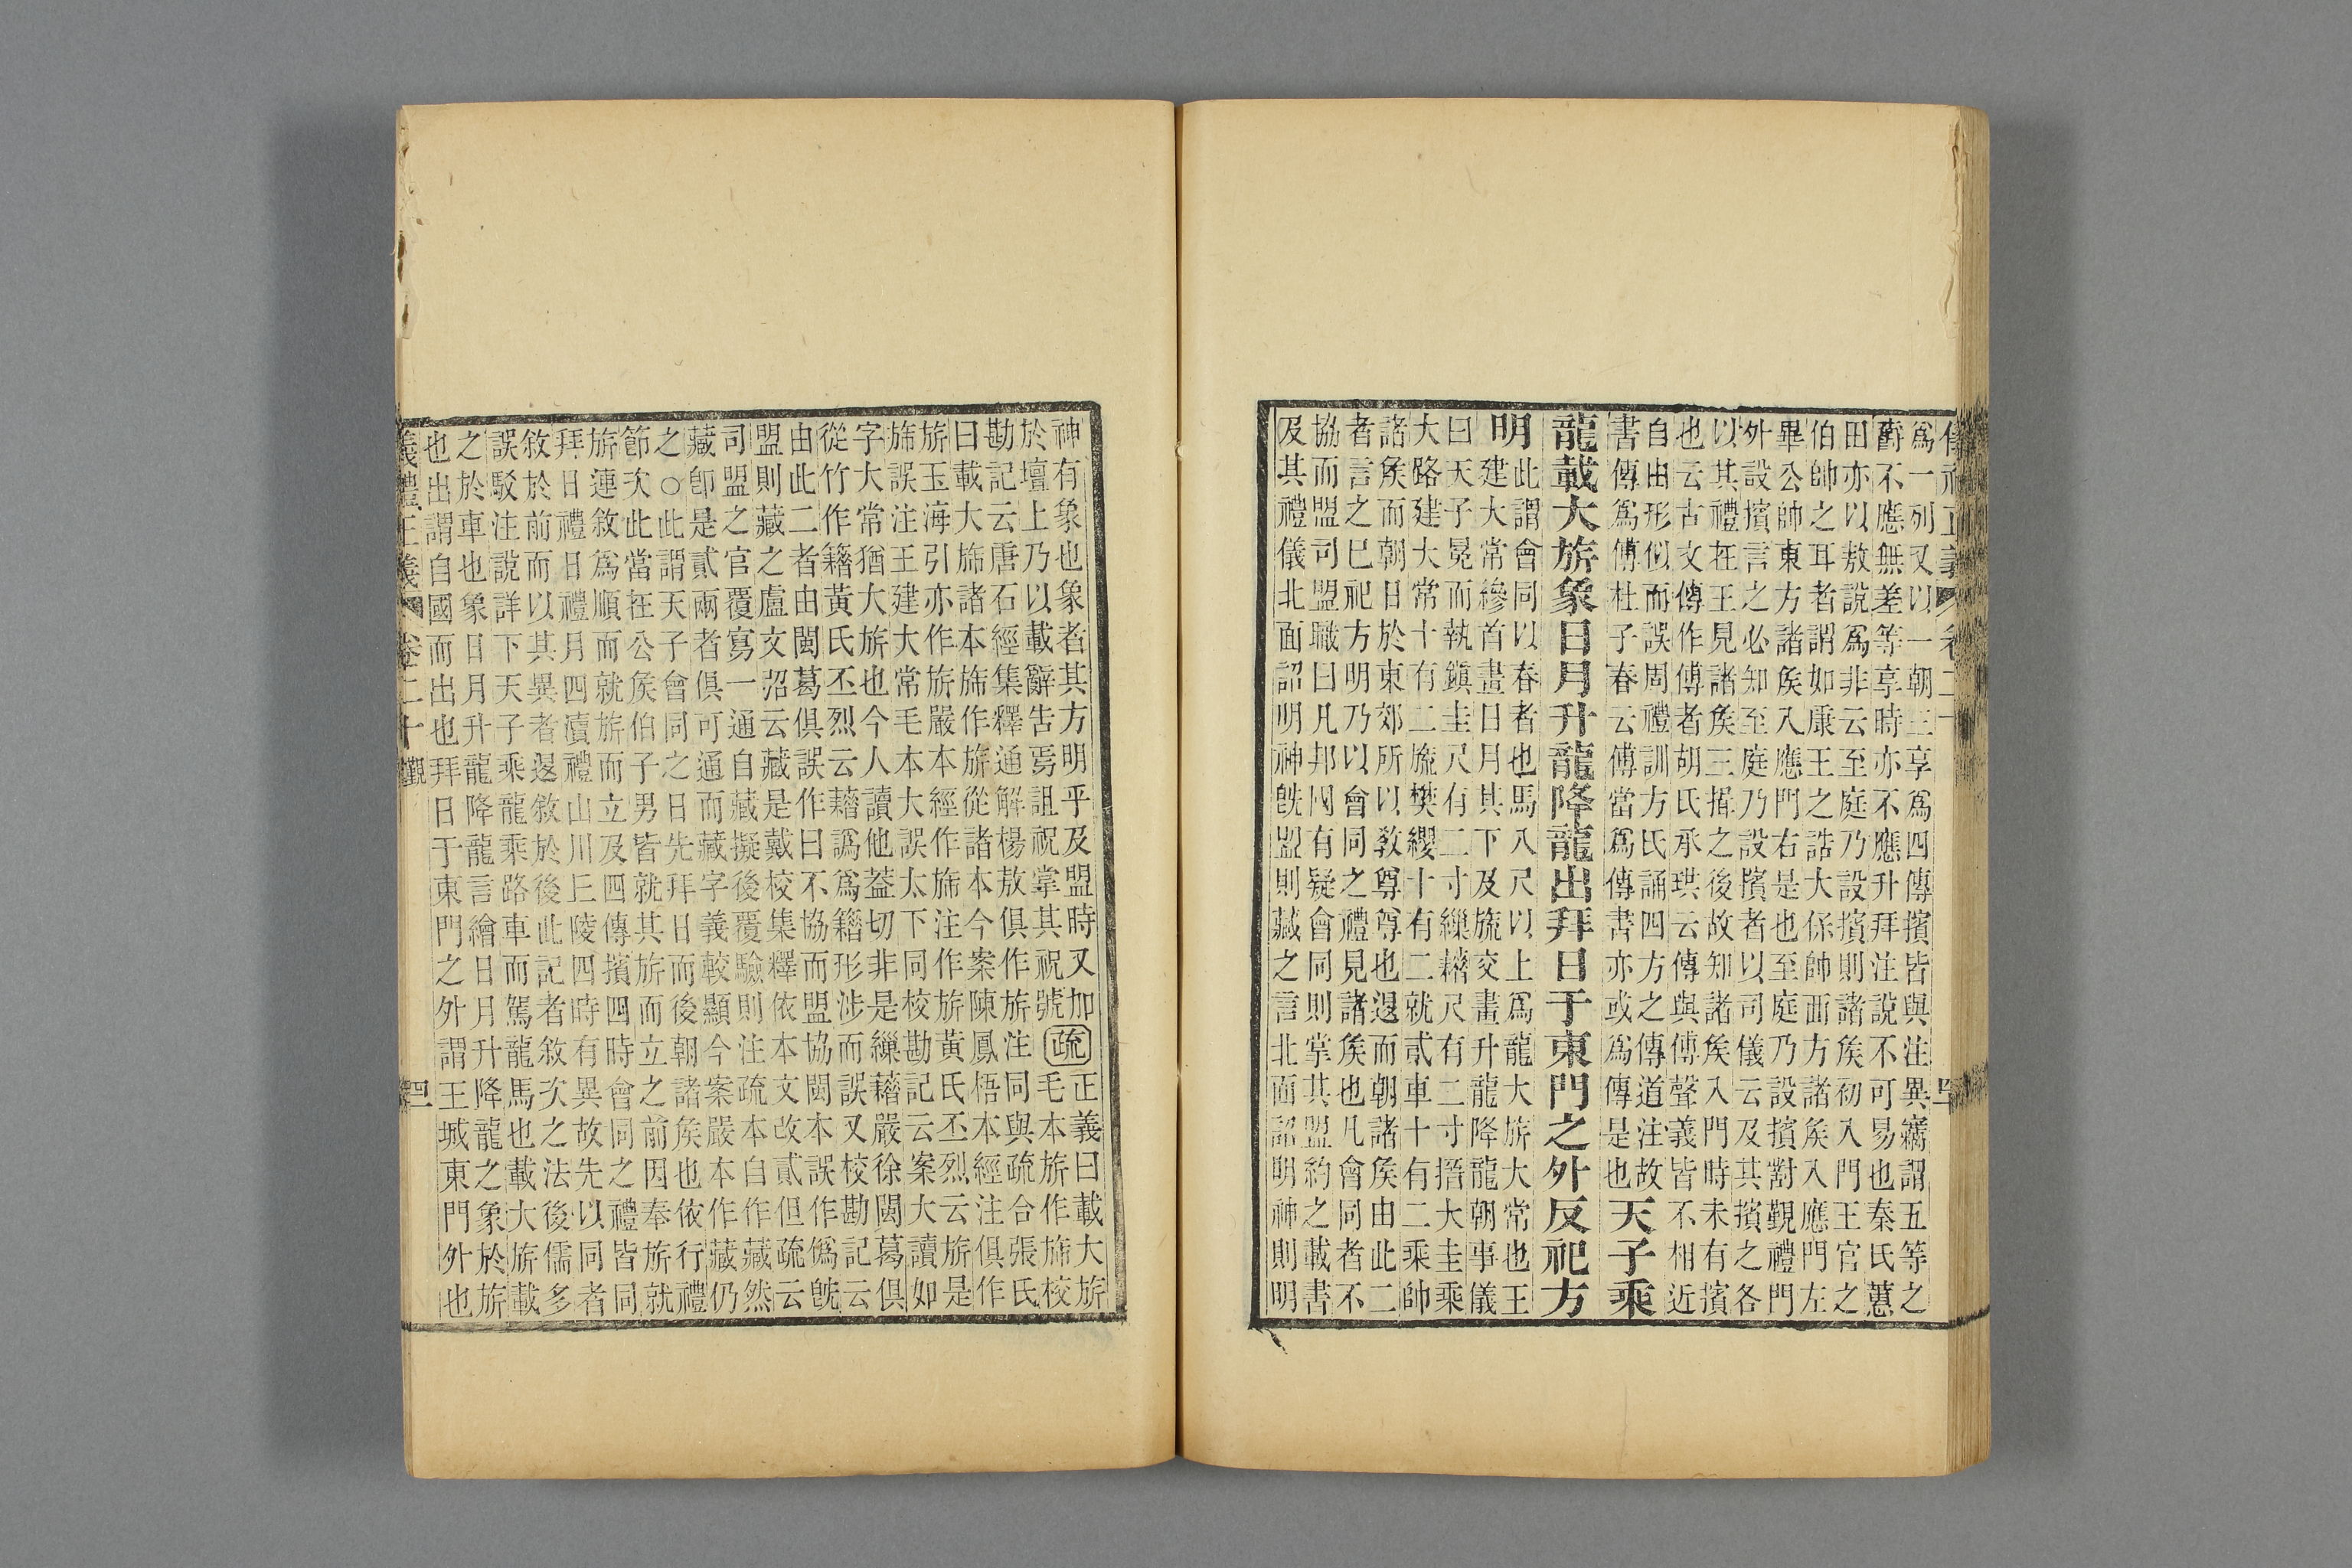 爲一列又以一朝三享爲四傳擯皆與注異竊謂五等之
爵不應無差等享時亦不應升拜注說不可易也秦氏蕙
田亦以敖說爲非云至庭乃設擯則諸矦初入門王官之
伯帥之耳者謂如康王之誥大保帥西方諸矦入應門左
畢公帥東方諸矦入應門右是也至庭乃設擯對覲禮門
外設擯言之必知至庭乃設擯者以司儀云及其擯之各
以其禮在王見諸矦三揖之後故知諸矦入門時未有擯
也云古文傳作傅者胡氏承珙云傳與傅聲義皆不相近
自由形似而誤周禮訓方氏誦四方之傳道注故
書傳爲傅杜子春云傅當爲傳書亦或爲傳是也
天子乘
龍載大旂象日月升龍降龍出拜日于東門之外反祀方
明
此謂會同以春者也馬八尺以上爲龍大旂大常也王
建大常縿首畫日月其下及旒交畫升龍降龍朝事儀
曰天子冕而執鎮圭尺有二寸繅藉尺有二寸搢大圭乘
大路建大常十有二旒樊纓十有二就貳車十有二乘帥
諸矦而朝日於東郊所以敎尊尊也退而朝諸矦由此二
者言之已祀方明乃以會同之禮見諸矦也凡會同者不
協而盟司盟職曰凡邦國有疑會同則掌其盟約之載書
及其禮儀北面詔明神旣盟則藏之言北面詔明神則明
神有象也象者其方明乎及盟時又加
於壇上乃以載辭告焉詛祝掌其祝號
疏
正義曰載大旂
毛本旂作旆校
勘記云唐石經集釋通解楊敖俱作旂注同與疏合張氏
曰載大旆諸本旆作旂從諸本今案陳鳳梧本經注俱作
旂玉海引亦作旂嚴本經作旆注作旂黃氏丕烈云旂是
旆誤注王建大常毛本大誤太下同校勘記云案大讀如
字大常猶大旂也今人讀他蓋切非是繅藉嚴徐閩葛俱
從竹作籍黃氏丕烈云藉譌爲籍形涉而誤又校勘記云
由此二者由閩葛俱誤作曰不協而盟協閩本誤作僞旣
盟則藏之盧文弨云藏是戴校集釋依本文改貳但疏云
司盟之官覆寫一通自藏擬後覆驗則注疏本自作藏然
藏卽是貳兩者俱可通而藏字義較顯今案嚴本作藏仍
之○此謂天子會同之日先拜日而後朝諸矦也依行禮
節次此當在公矦伯子男皆就其旂而立之前因奉旂就
旂連敘爲順而就旂而立及四傳擯四時會同之禮皆同
拜日禮日禮月四瀆禮山川丘陵四時有異故先以同者
敘於前而以其異者退敘於後此記者敘次之法後儒多
誤駁注說詳下天子乘龍乘路車而駕龍馬也載大旂載
之於車也象日月升龍降龍言繪日月升降龍之象於旂
也出謂自國而出也拜日于東門之外謂王城東門外也
義禮正義 卷二十 覲